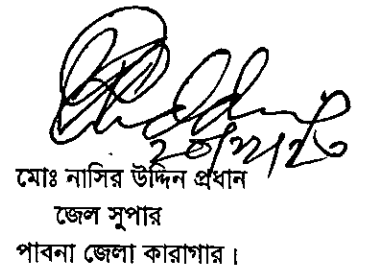 মোঃ নাসির উদ্দিন প্রধান
জেল সুপার
পাবনা জেলা কারাগার।